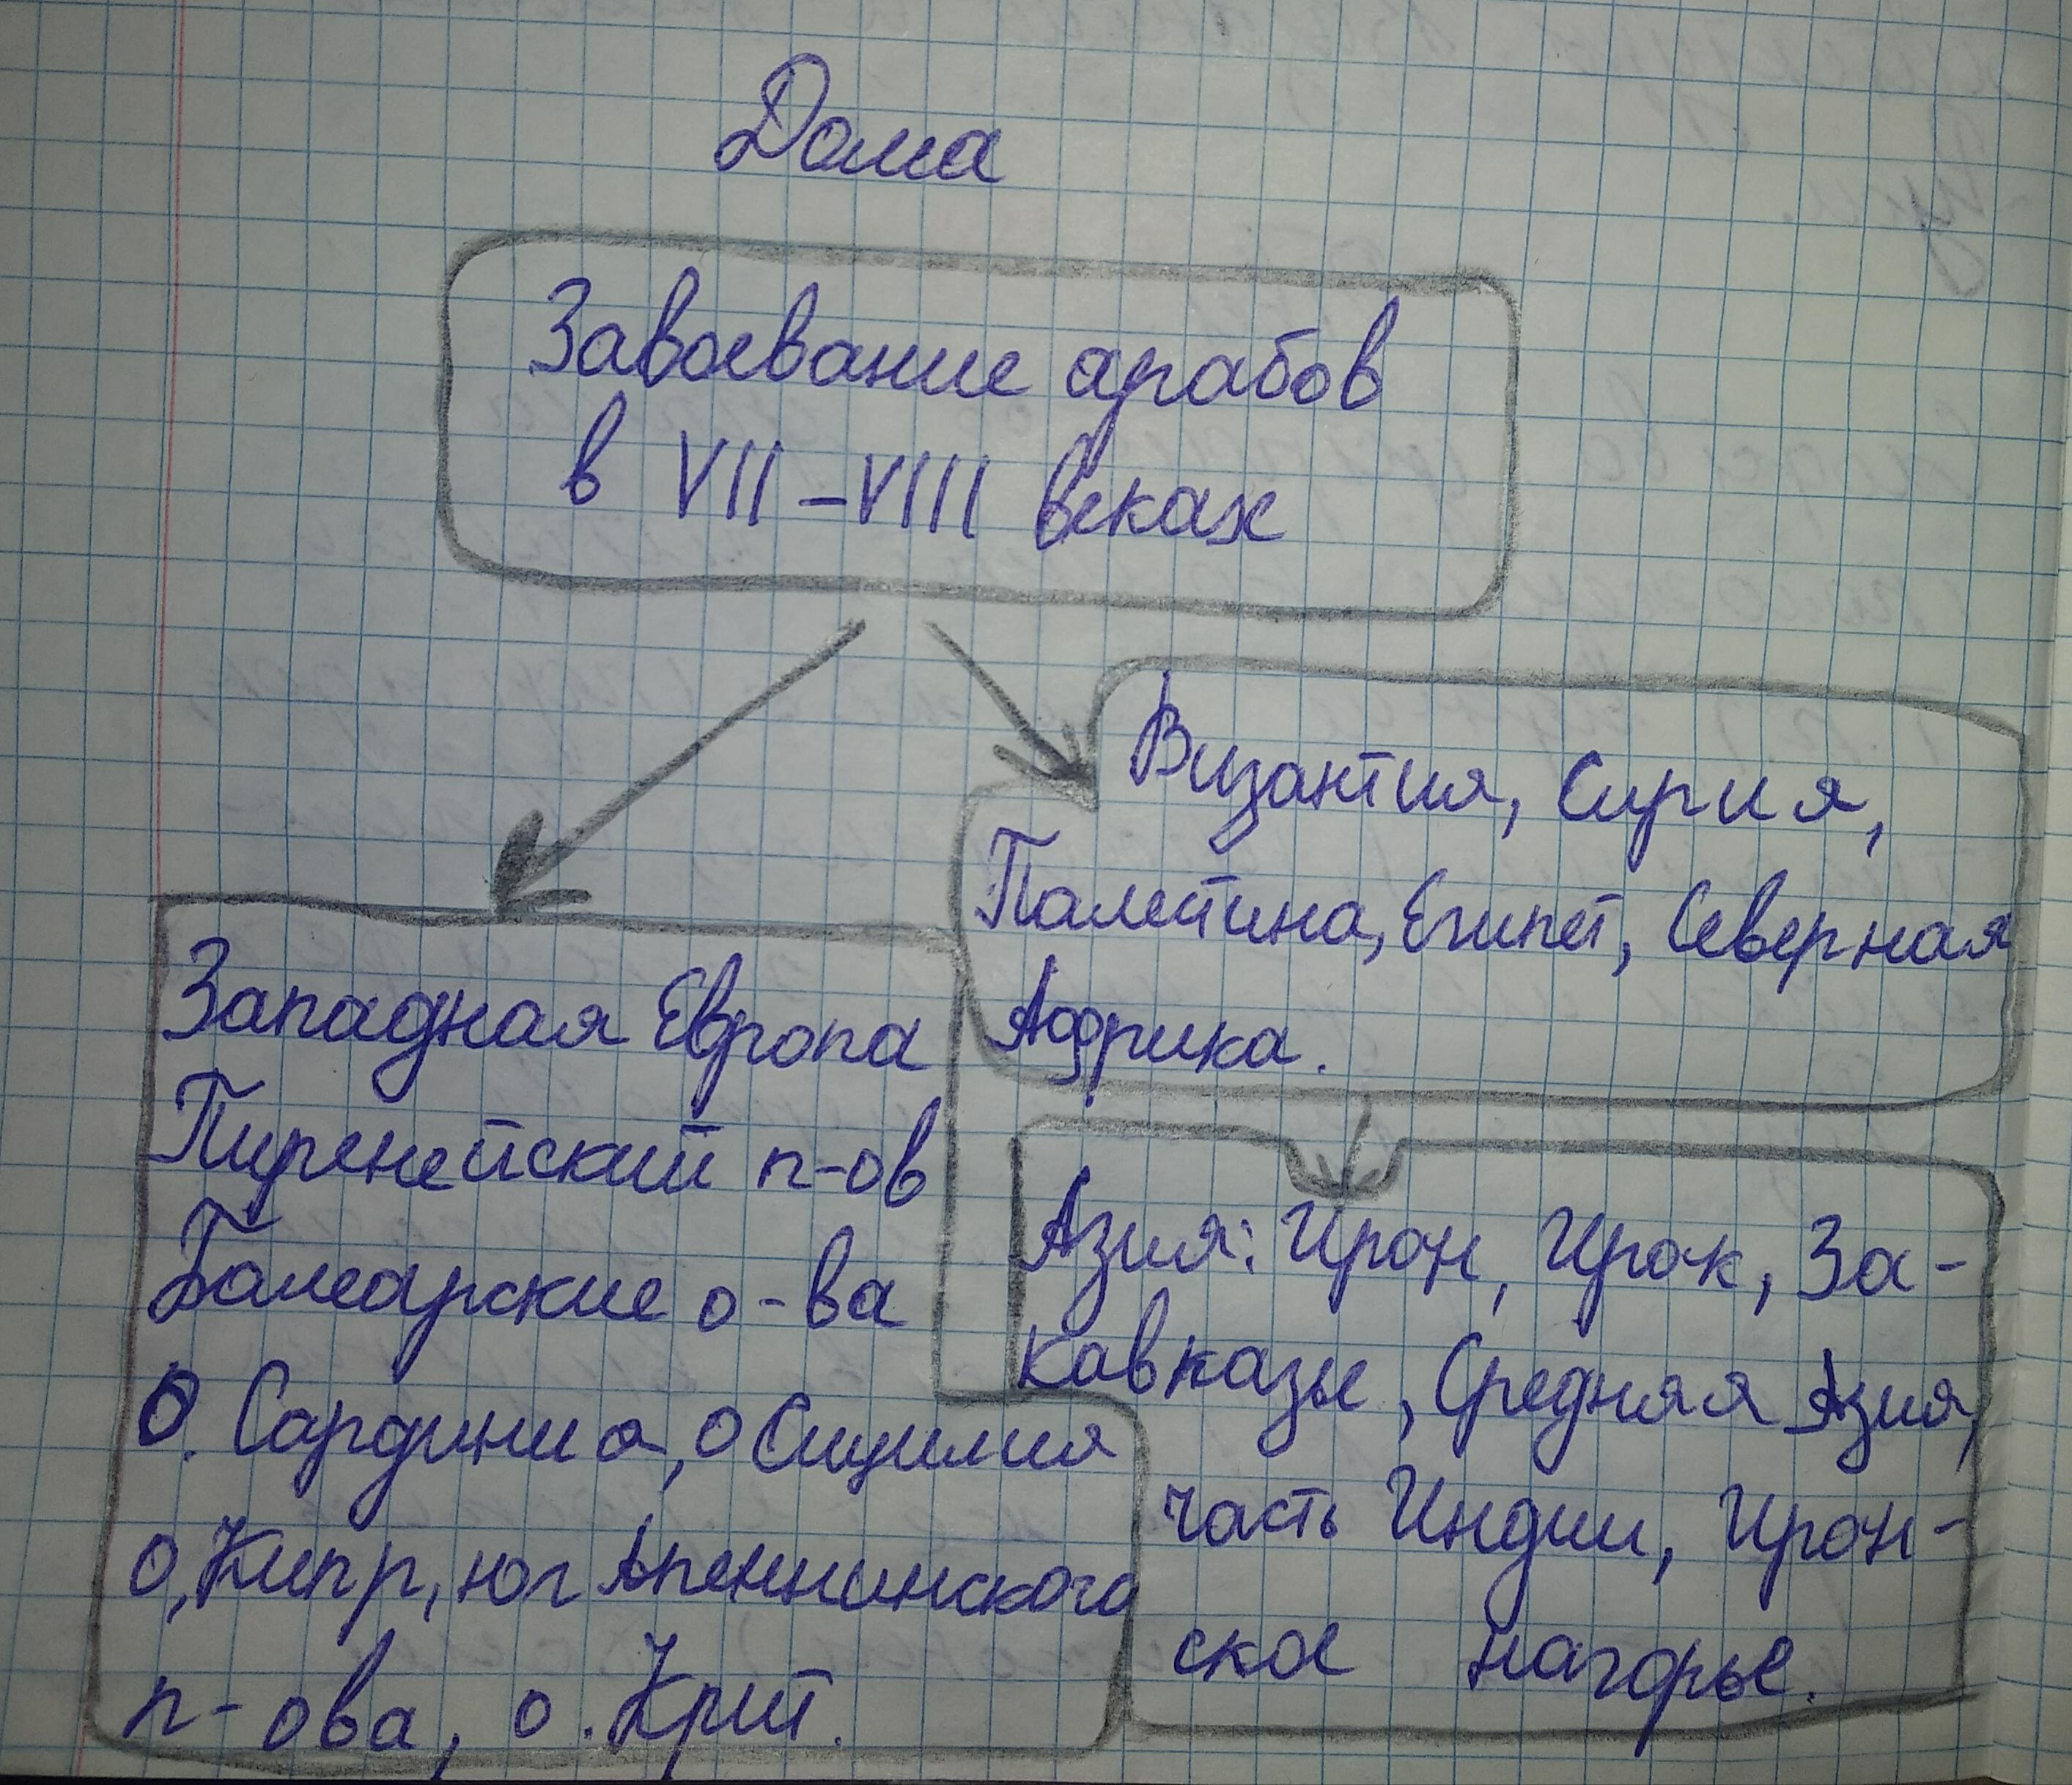 Дома
Завоевание арабов
в VII – VIII веках
Византия, Сирия,
Палестина, Египет, Северная
Африка.
Западная Европа
Пиренейский п-ов
Балеарские о-ва
О. Сардиния, о Сицилия
о, Кипр, юг Апеннинского
п-ова, о. Крит.
Азия: Иран, Ирак, За-
кавказье, Средняя Азия,
часть Индии, Иран-
ское нагорье.